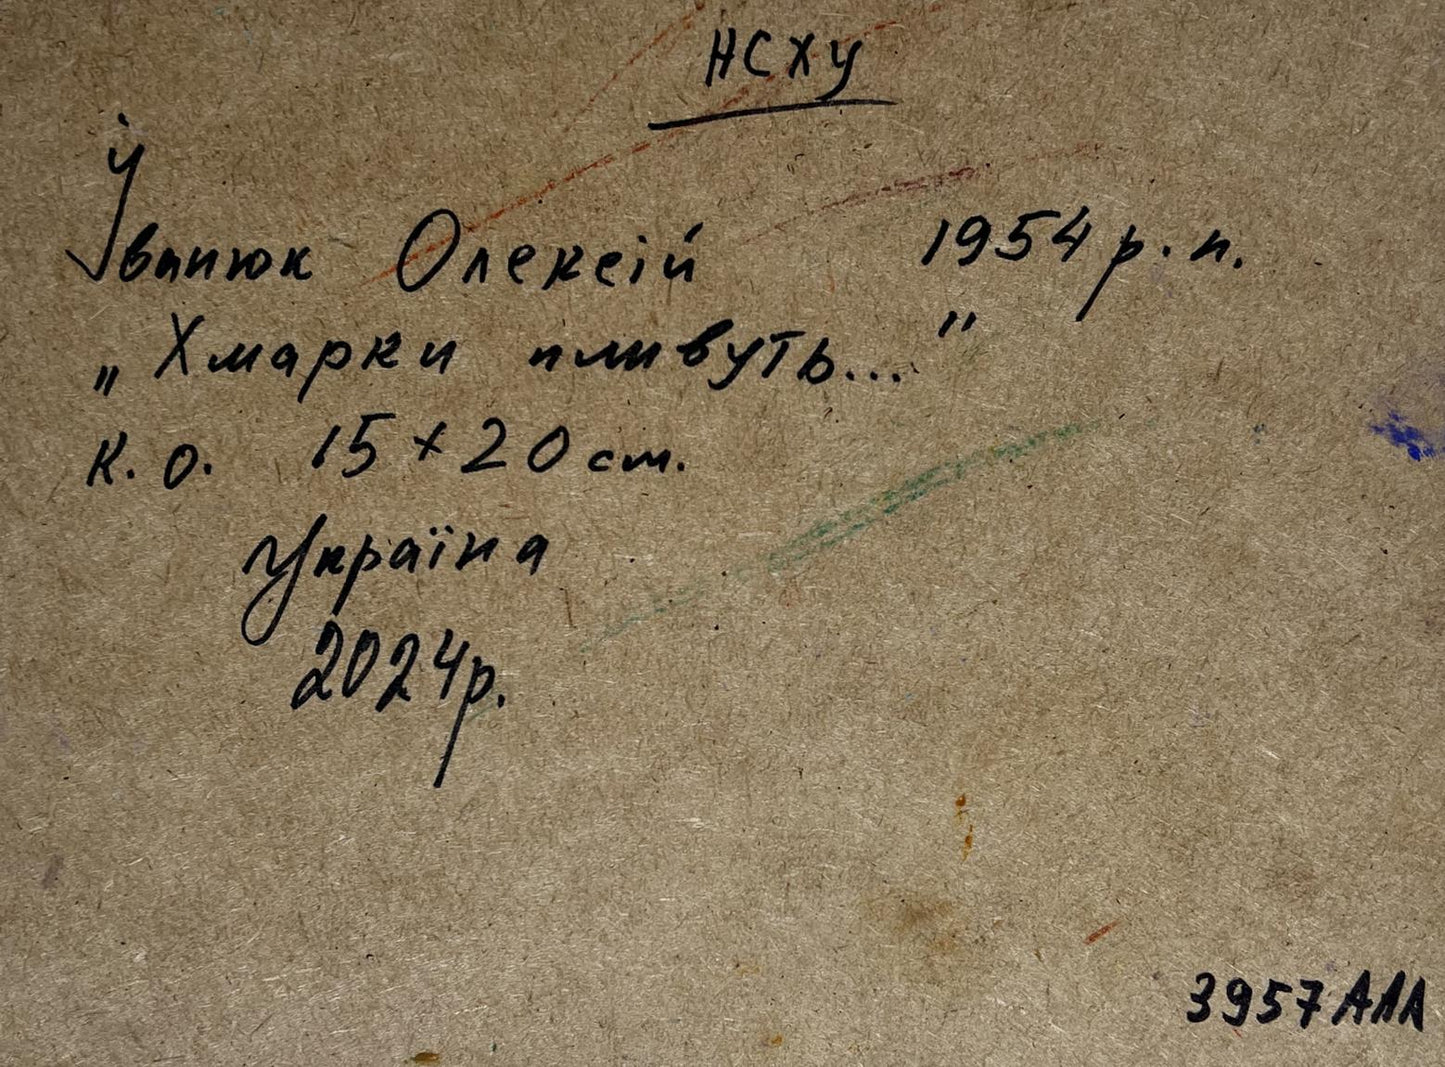 НСХУ
Іванюк Олексій 1954 р. н.
„Хмарки пливуть..."
к. о. 15 × 20 см.
Україна
2024р.
3957 АЛА